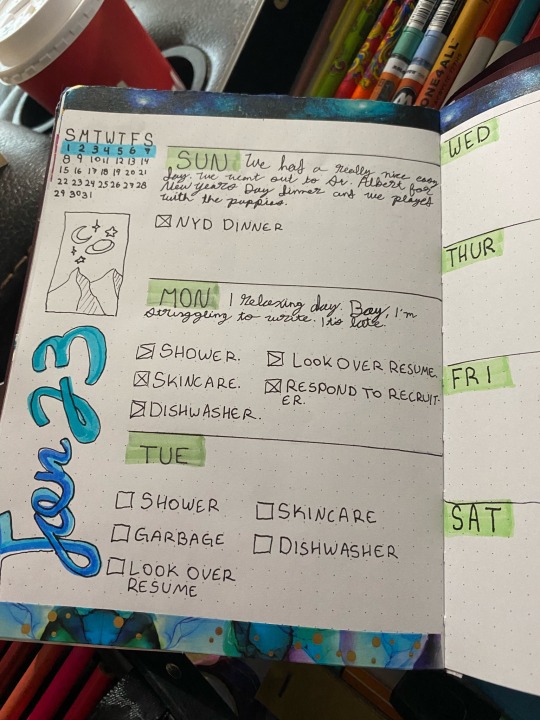 SMTWTFS
1 2 3 4 5 6 7
8 9 10 11 12 13 14
15 16 17 18 19 20 21
22 23 24 25 26 27 28
29 30 31
Jan 23
SUN We had a really nice easy
day. We went out to St. Albert for
New years Day dinner and we played
with the puppies.
NYD DINNER
MON 1 relaxing day. Boy, I'm
struggling to write. It's late.
SHOWER.
SKINCARE.
DISHWASHER.
LOOK OVER RESUME.
RESPOND TO RECRUIT-
ER.
TUE
SHOWER
GARBAGE
LOOK OVER
RESUME
SKINCARE
DISHWASHER
WED
THUR
FRI
SAT
ONE4ALL